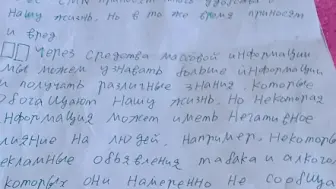 СМИ приносят много
нашу жизнь. Но в то же время приносят
и вред
Через средства массовой информации
мы можем узнавать больше информации
и получать различные знания, которые
обогащают нашу жизнь. Но некоторая
информация может иметь негативное
лияние на людей. Например, некоторы
екламные объявления табака и алкогол
которых они намеренно не сообщ